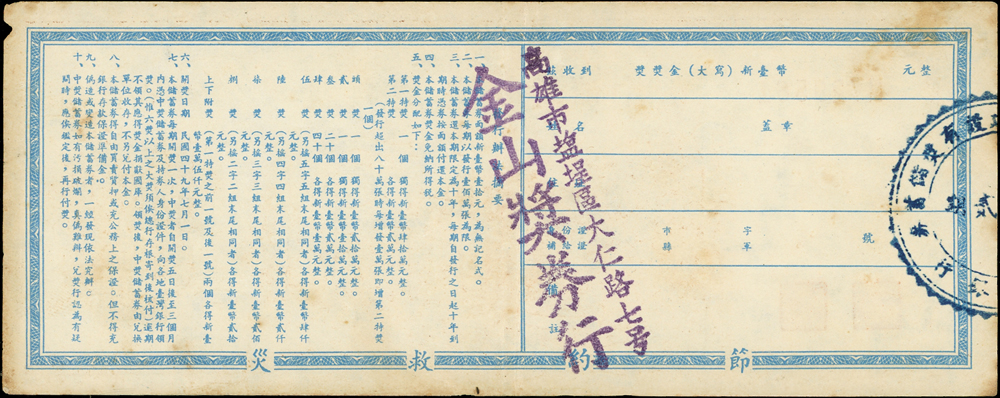 茲收到 獎獎金（大寫）新臺幣 元整
名
蓋章
市縣
字
號
註
高雄市塩埕區大仁路七号
金山獎券行
發行辦法摘要
一、本儲蓄券面額新臺幣壹拾元，為無記名式。
二、本儲蓄券每期以發行壹佰萬張為限。
三、本儲蓄券還本期限定為十年，每期自發行之日起十年到
期時憑券按面額付還本金。
四、本儲蓄券獎金免納所得稅。
五、獎金分配如下：
第一特獎 一個 獨得新臺幣肆拾萬元整。
第二特獎（發行超出八十萬張時每增發壹萬張即增第二特獎
一個）
頭獎 一個 獨得新臺幣貳拾萬元整。
貳獎 一個 獨得新臺幣壹拾萬元整。
叁獎 二十個 各得新臺幣貳萬元整。
肆獎 四十個 各得新臺幣壹萬元整。
伍獎（另搖五字五組末尾相同者）各得新臺幣肆仟
元整。
陸獎（另搖四字四組末尾相同者）各得新臺幣壹仟
元整。
柒獎（另搖三字三組末尾相同者）各得新臺幣貳佰
元整。
捌獎（另搖二字二組末尾相同者）各得新臺幣貳拾
元整。
上下附獎（第一特獎之前一號及後一號）兩個各得新臺
幣壹萬伍仟元整。
六、開獎日期 民國四十九年七月一日。
七、本儲蓄券每期開獎一次，中獎者自開獎五日後至三個月
內憑中獎儲蓄券及持券人身份證件，向各地臺灣銀行領
獎。（惟六獎以上之大獎須俟總行存根寄到後核付）逾期
不領其應得獎金捐獻國庫。領獎後，中獎儲蓄券由兌換
銀行收存，不另兌付本金。
八、本儲蓄券得自由買賣質押或充公務上之保證。但不得充
銀行存款保證準備金。
九、偽造或變造本儲蓄券者，一經發現依法究辦。
十、中獎儲蓄券如有污損破爛，真偽難辨，兌獎行認為有疑
問時，應俟鑑定後，再行付獎。
節約救災